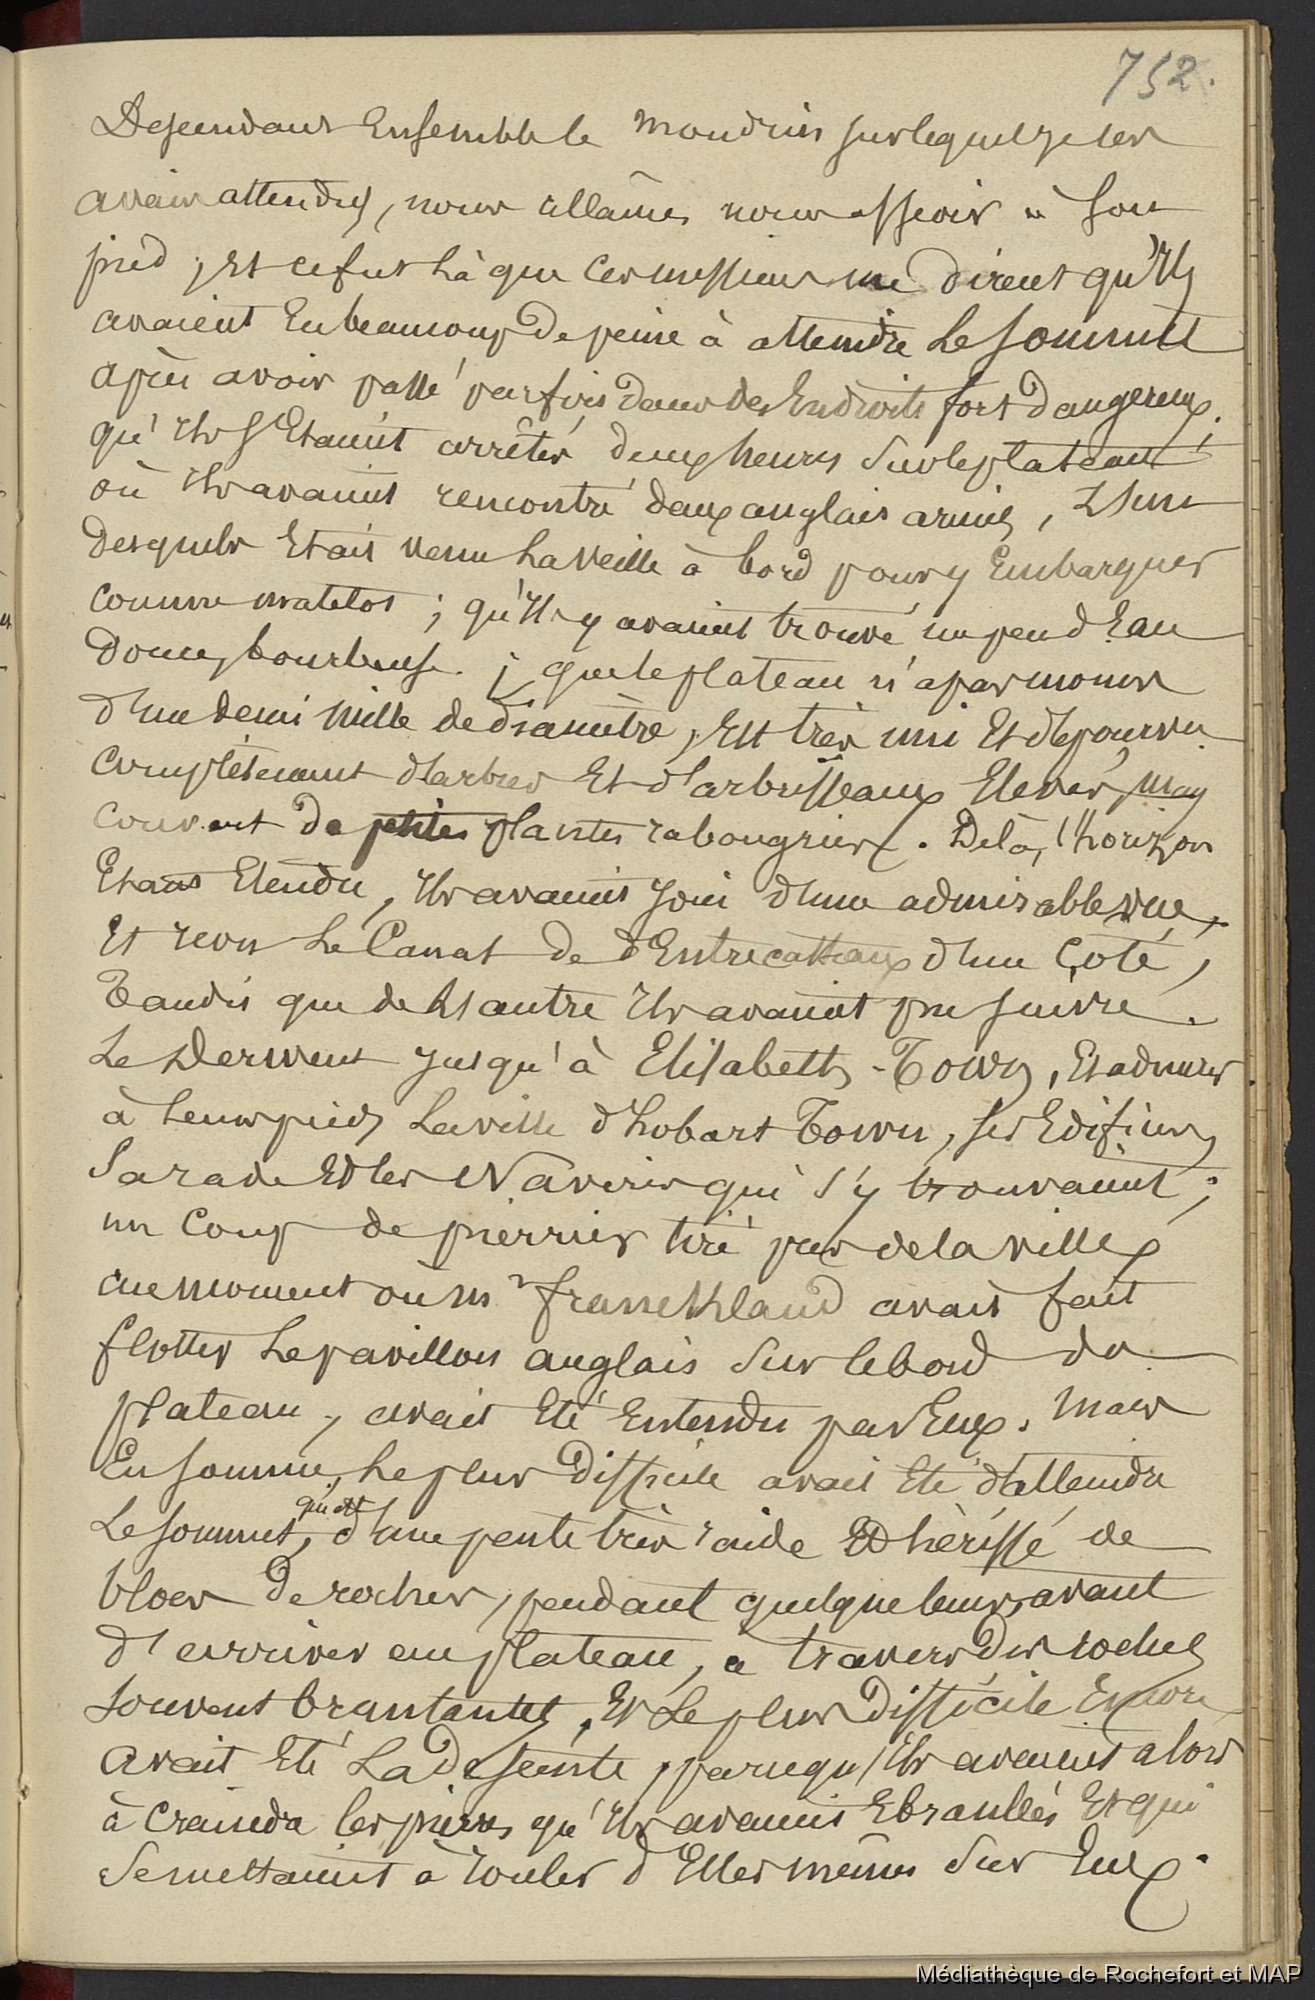 752.
Descendant Ensemble le mondrin sur lequel je les
avais attendus, nous allâmes nous asseoir à son
pied, Et ce fut Là que Ces messieurs me dirent qu'ils
avaient Eu beaucoup De peine à atteindre Le Sommet
après avoir passé parfois dans des Endroits fort Dangereux,
qu'ils s'Etaient arrêtés deux heures sur le plateau
où ils avaient rencontré deux anglais armés, L'un
desquels Etait venu La veille à bord pour y Embarquer
comme matelot ; qu'ils y avaient trouvé un peu d'Eau
douce, bourbeuse ; que le plateau n'a pas moins
d'un demi mille de diamètre, Est très uni Et dépourvu
complètement d'arbres Et d'arbrisseaux Elevés, mais
couvert de petites plantes rabougries. De là, l'horizon
Etant Etendu, ils avaient joui d'une admirable vue,
Et revu Le Canal de d'Entrecasteaux d'un Côté,
Tandis que de L'autre ils avaient pu suivre
Le Derwent jusqu'à Elisabeth-Town, Et admirer
à leurs pieds La ville d'hobart Town, ses Edifices,
Sa rade Et les Navires qui s'y trouvaient ;
un Coup de pierrier tiré par de la ville
au moment où mr frankland avait fait
flotter Le pavillon anglais sur le bord du
plateau, avait Eté Entendu par Eux. Mais
En somme, Le plus Difficile avait Eté d'atteindre
qui est
Le sommet, d'une pente très raide Et hérissé de
blocs De rocher, pendant quelque temps, avant
d'arriver au plateau, à travers Des roches
souvent branlantes, Et Le plus Difficile Encore
avait Eté La Descente, parcequ'ils avaient alors
à Craindre les pierres qu'ils avaient Ebranlées Et qui
Se mettaient à rouler d'Elles mêmes sur Eux.
Médiathèque de Rochefort et MAP